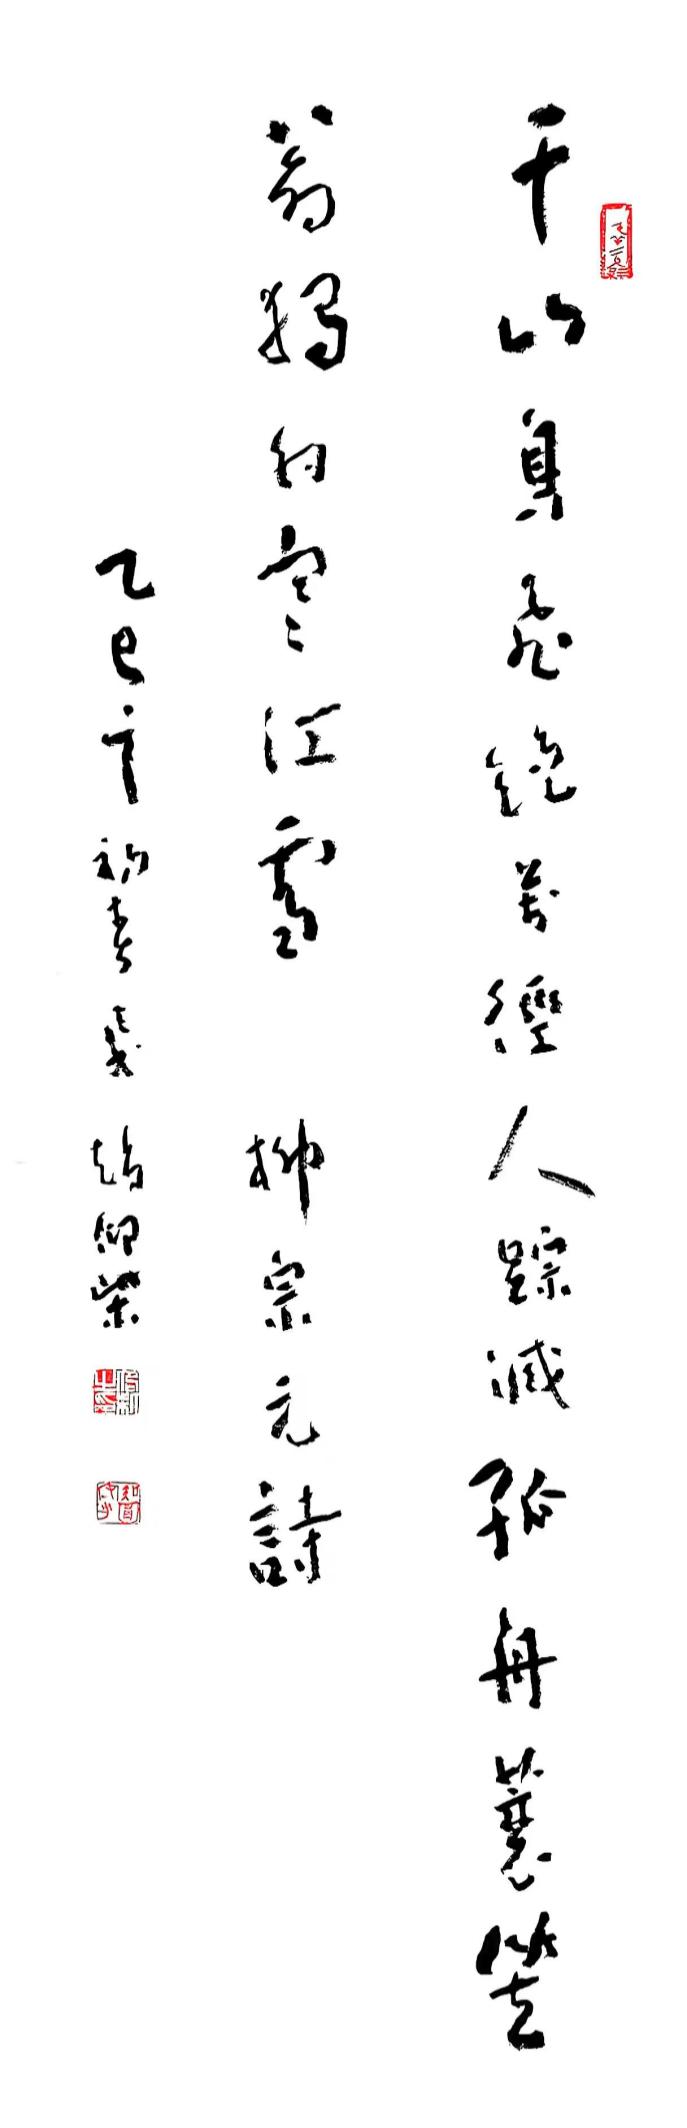 千山鳥飛絕萬徑人踪滅孤舟蓑笠
翁獨釣寒江雪 柳宗元詩
乙巳年初春 趙仰